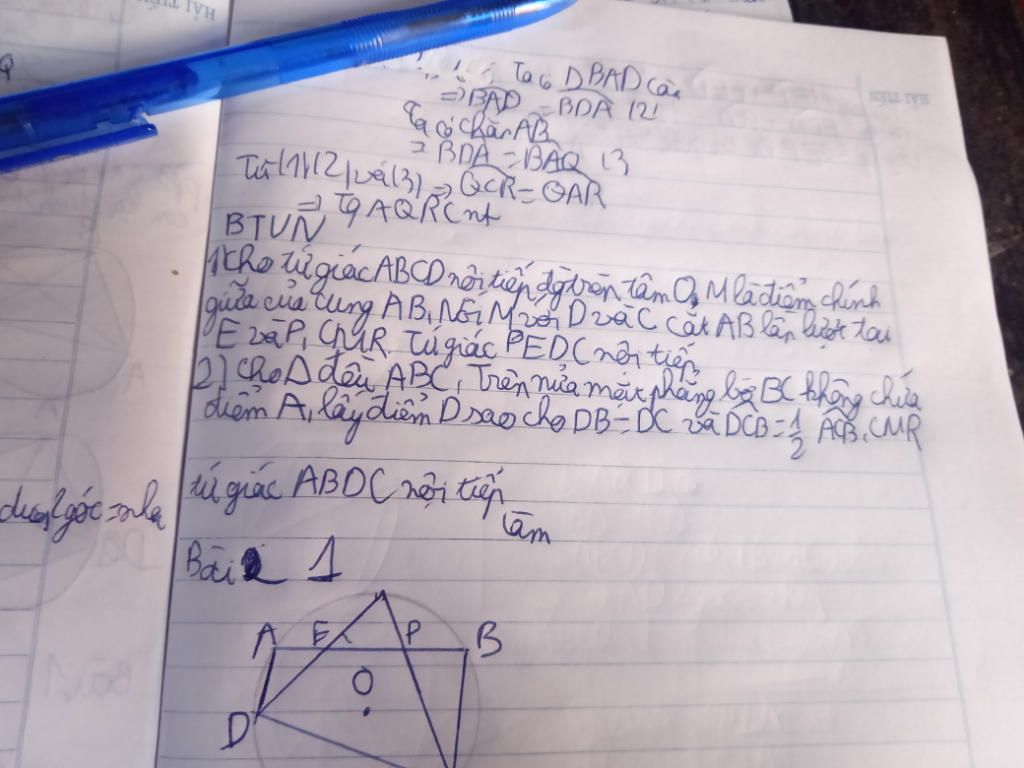 HẢI TIẾN
Ta có DBAD cân
⇒ BAD = BDA (2)
Ta có chắn AB
⇒ BDA = BAQ (3
Từ (1)(2) và (3) ⇒ QCR = QAR
⇒ Tg AQRC nt
BTVN
1) Cho tứ giác ABCD nội tiếp đg tròn tâm O, M là điểm chính
giữa của cung AB, Nối M với D và C cắt AB lần lượt tại
E và P, CMR Tứ giác PEDC nội tiếp,
2) Cho Δ đều ABC, Trên nửa mặt phẳng bờ BC không chứa
điểm A, lấy điểm D sao cho DB = DC và DCB = 1/2 ACB, CMR
tứ giác ABDC nội tiếp
tâm
Bài 1
A E P B
O
D